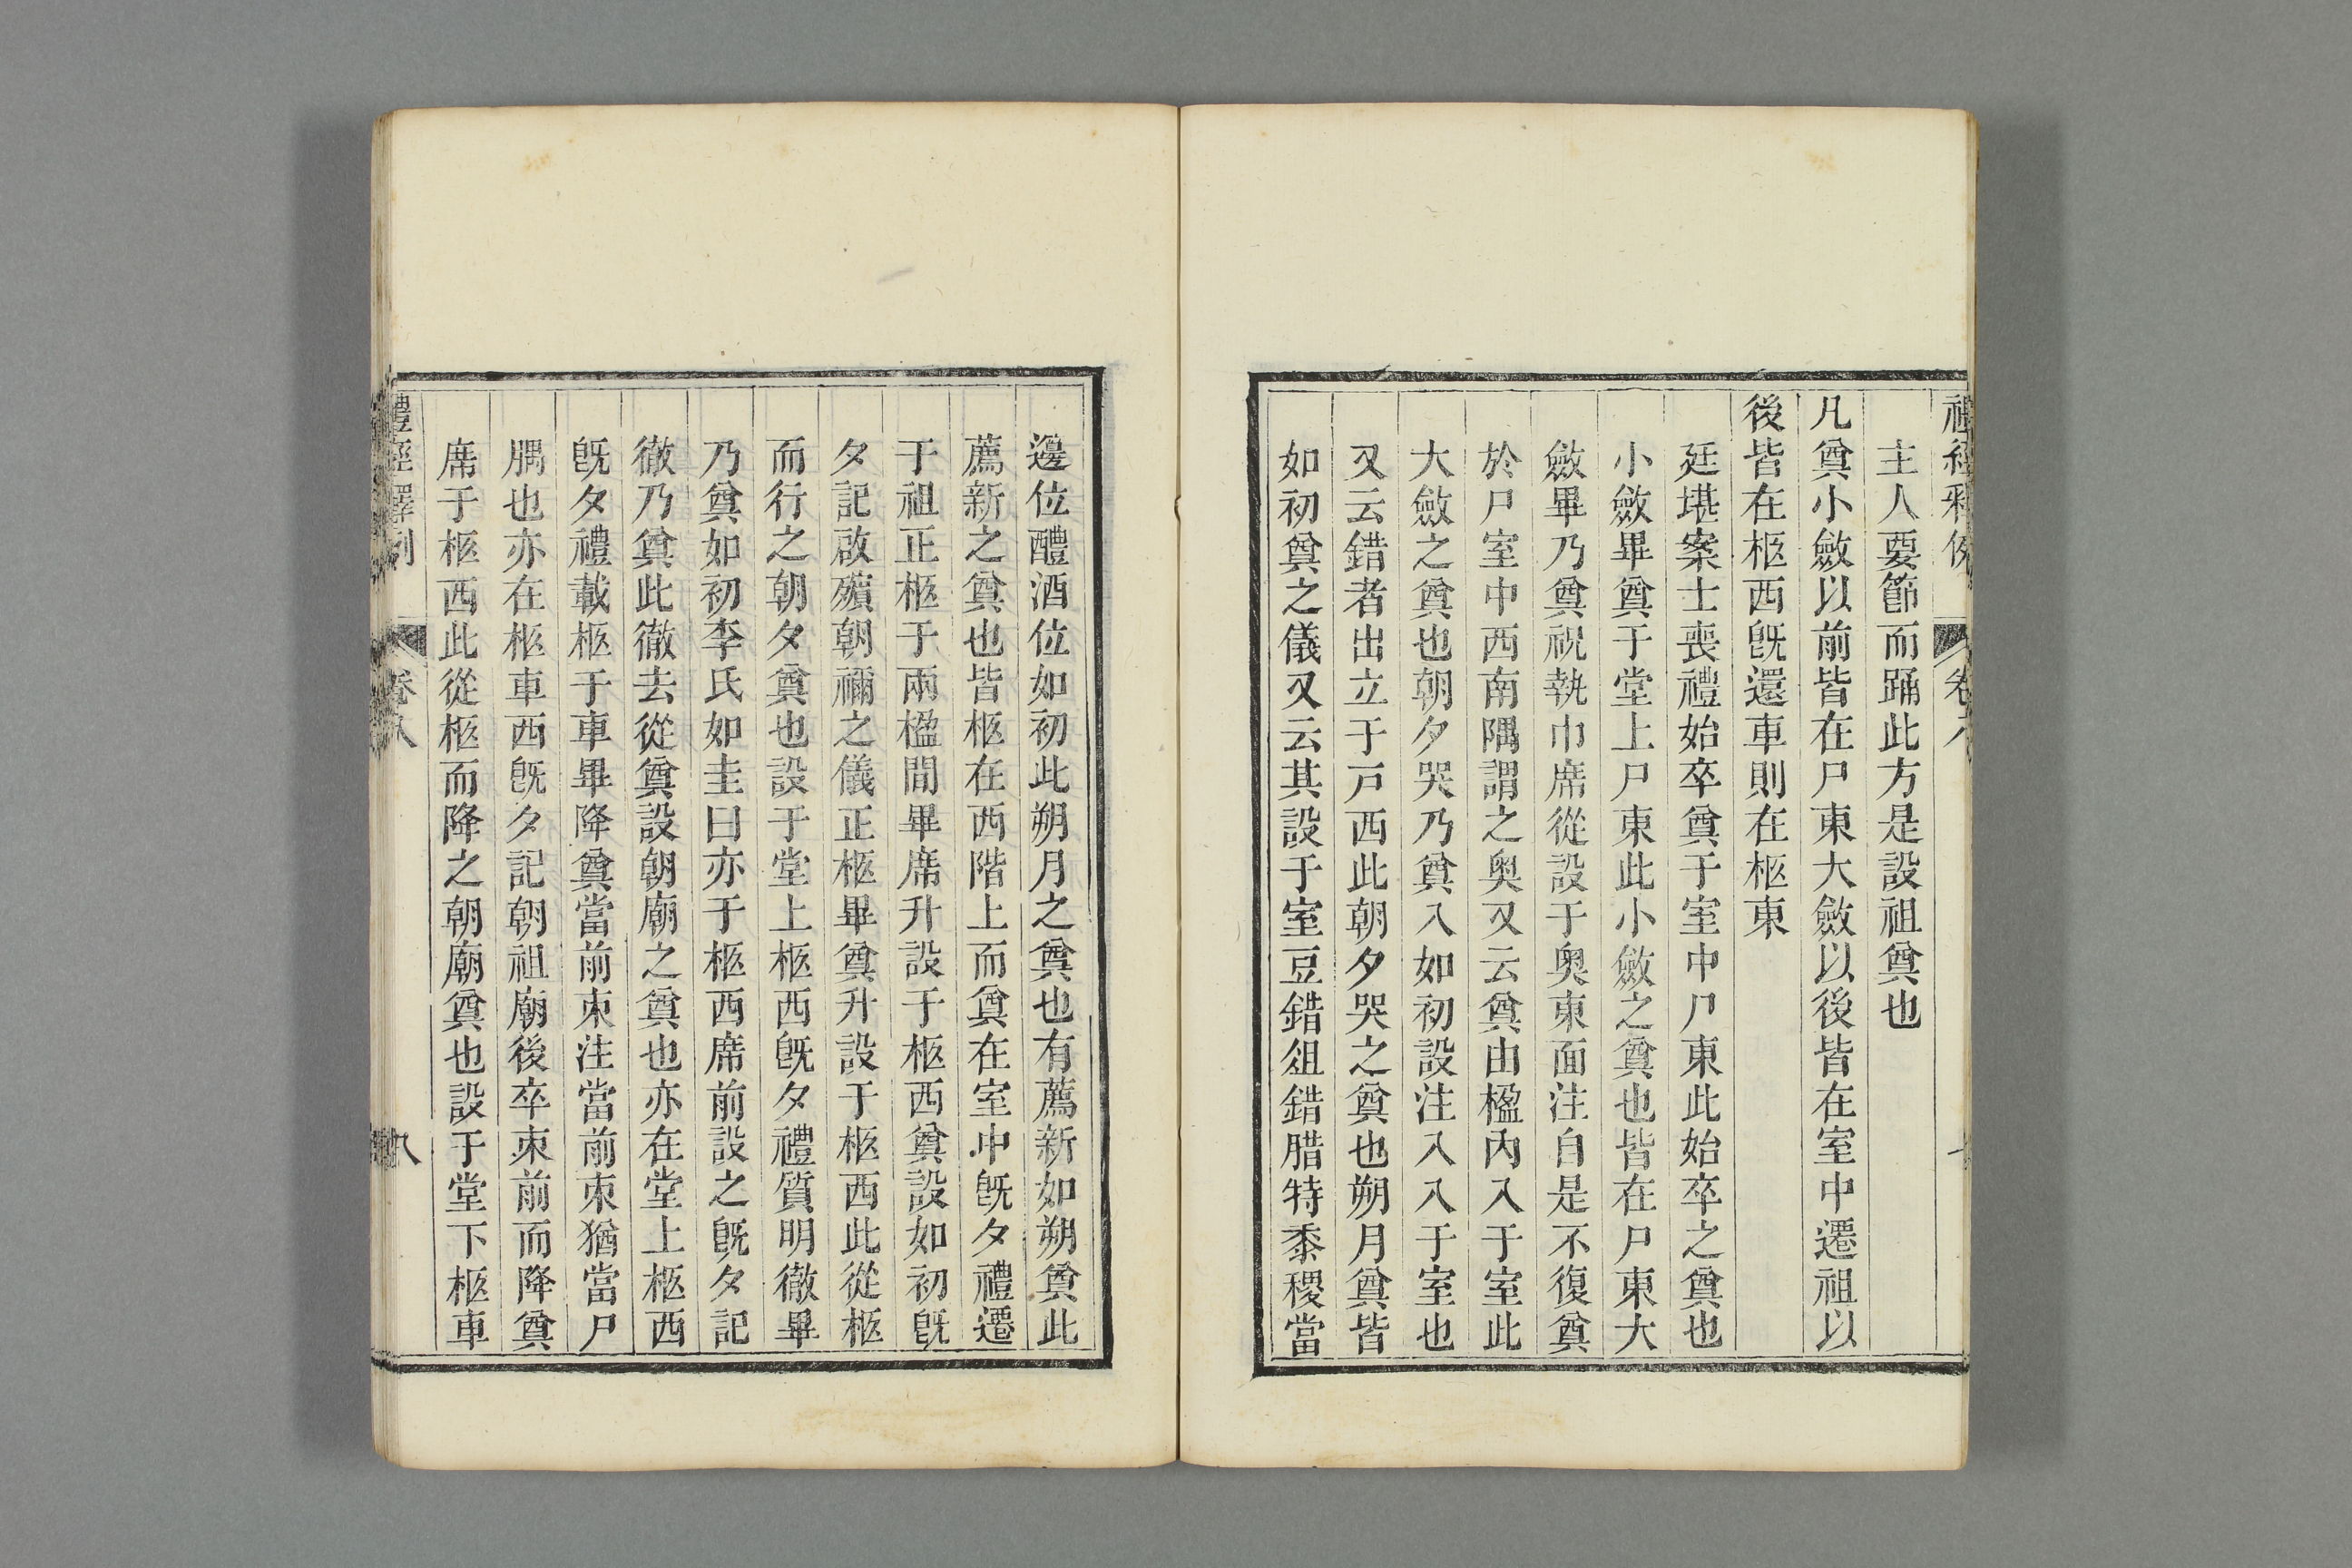 主人要節而踊此方是設祖奠也
凡奠小斂以前皆在尸東大斂以後皆在室中遷祖以
後皆在柩西旣還車則在柩東
廷堪案士喪禮始卒奠于室中尸東此始卒之奠也
小斂畢奠于堂上尸東此小斂之奠也皆在尸東大
斂畢乃奠祝執巾席從設于奧東面注自是不復奠
於尸室中西南隅謂之奧又云奠由楹內入于室此
大斂之奠也朝夕哭乃奠入如初設注入入于室也
又云錯者出立于戸西此朝夕哭之奠也朔月奠皆
如初奠之儀又云其設于室豆錯俎錯腊特黍稷當
籩位醴酒位如初此朔月之奠也有薦新如朔奠此
薦新之奠也皆柩在西階上而奠在室中旣夕禮遷
于祖正柩于兩楹間畢席升設于柩西奠設如初旣
夕記啟殯朝禰之儀正柩畢奠升設于柩西此從柩
而行之朝夕奠也設于堂上柩西旣夕禮質明徹畢
乃奠如初李氏如圭曰亦于柩西席前設之旣夕記
徹乃奠此徹去從奠設朝廟之奠也亦在堂上柩西
旣夕禮載柩于車畢降奠當前束注當前束猶當尸
腢也亦在柩車西旣夕記朝祖廟後卒束前而降奠
席于柩西此從柩而降之朝廟奠也設于堂下柩車
禮經釋例 卷八 八